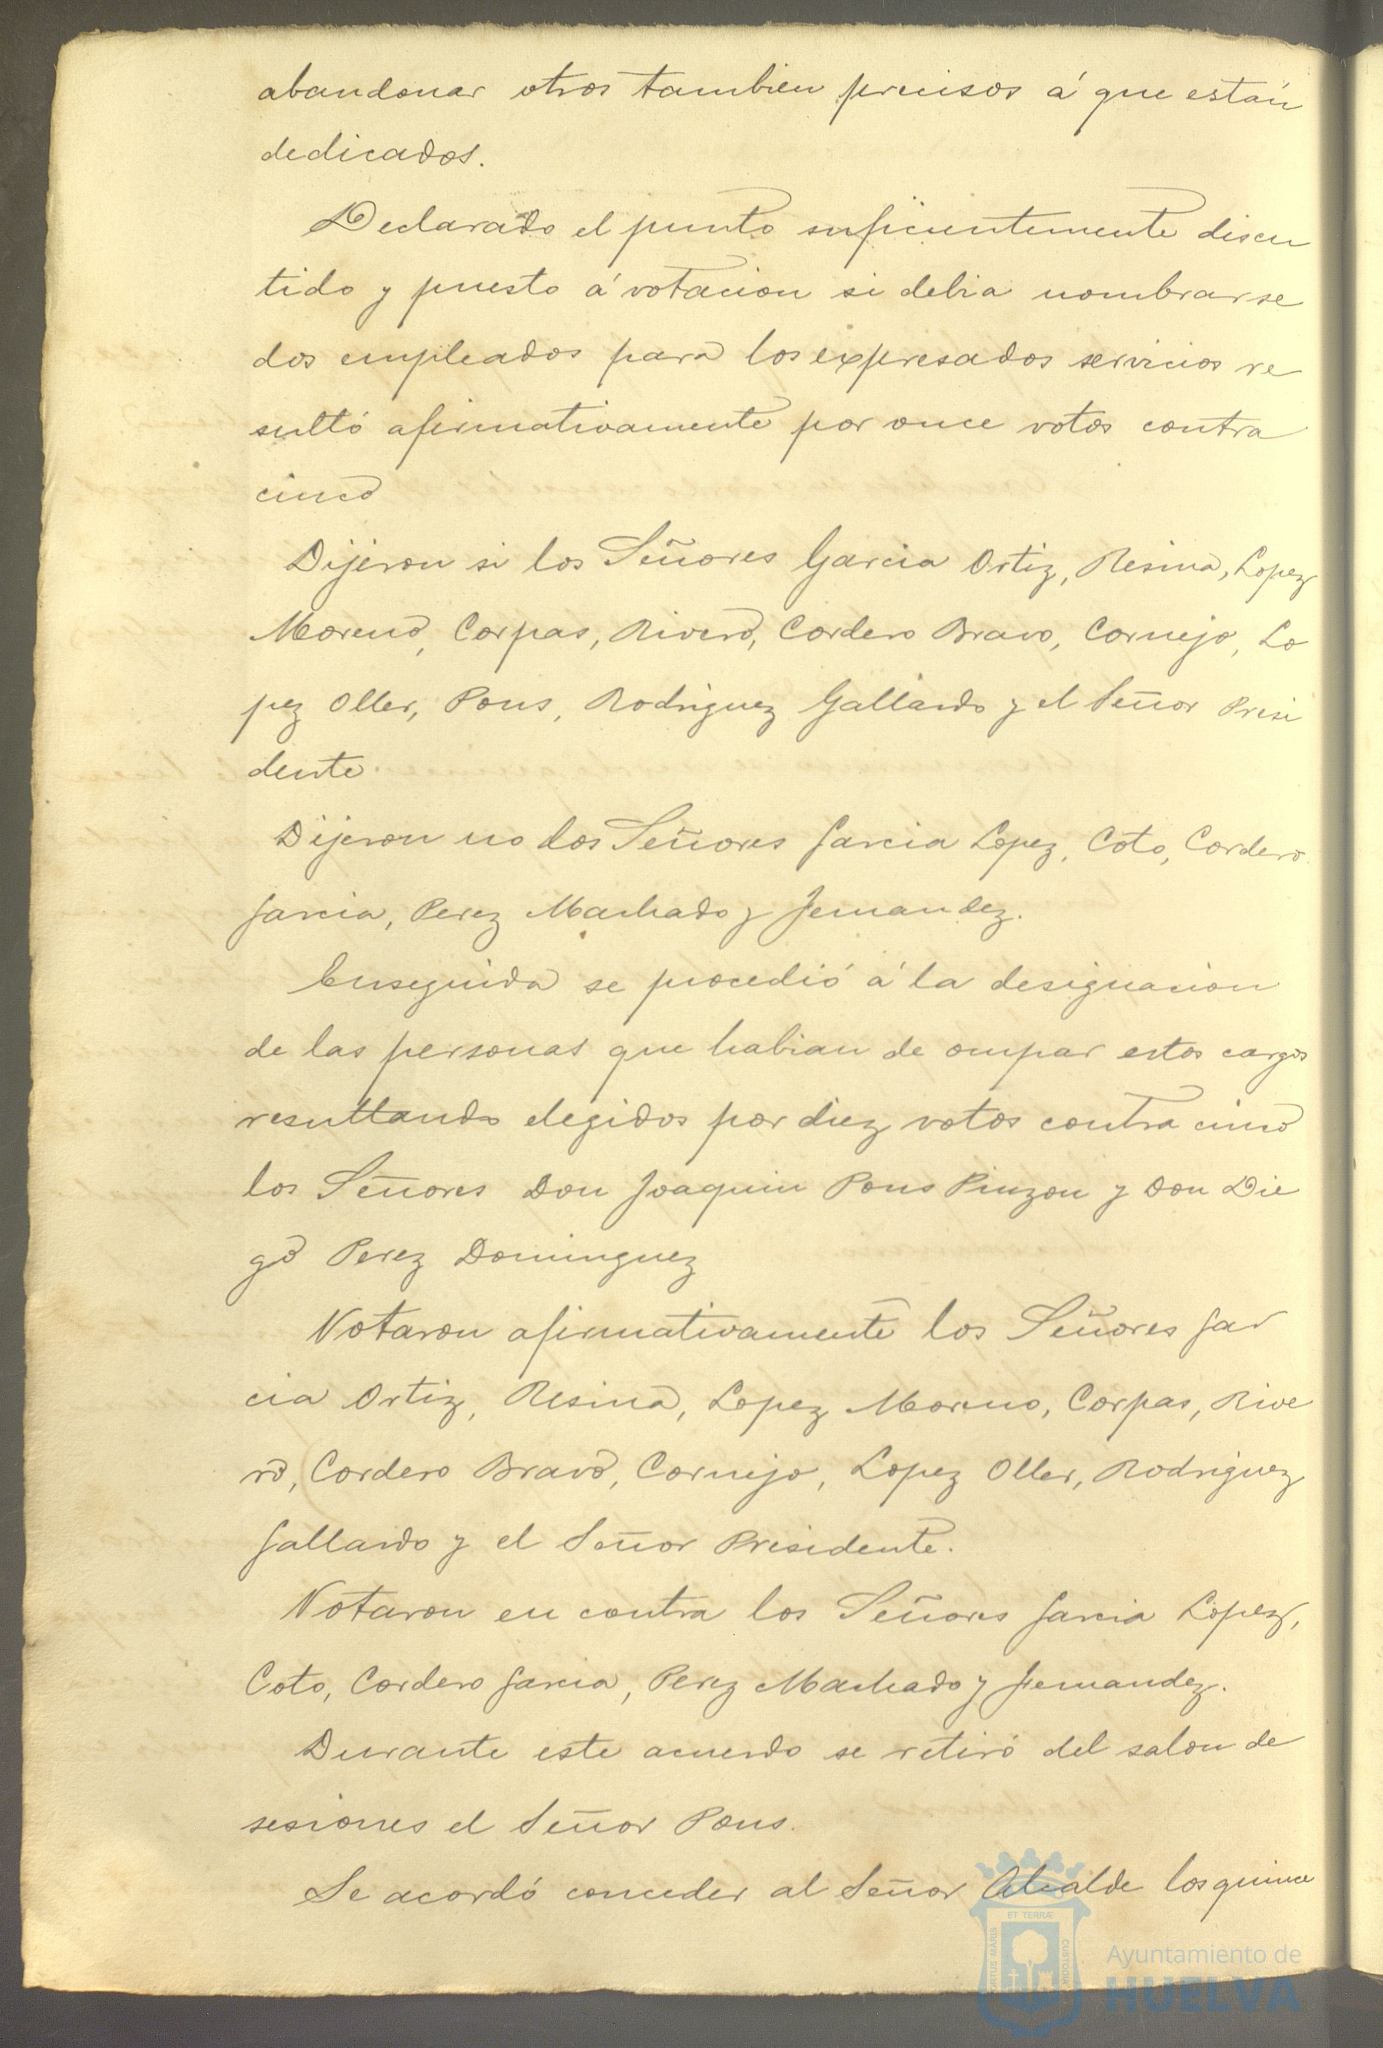 abandonar otros tambien precisos á que están
dedicados.
Declarado el punto suficientemente discu
tido y puesto á votacion si debia nombrarse
dos empleados para los expresados servicios re
sultó afirmativamente por once votos contra
cinco
Dijeron si los Señores Garcia Ortiz, Resina, Lopez
Moreno, Corpas, Rivero, Cordero Bravo, Cornejo, Lo
pez Oller, Pons, Rodriguez Gallardo y el Señor Presi
dente.
Dijeron no los Señores Garcia Lopez, Coto, Cordero
Garcia, Perez Machado y Fernandez.
Enseguida se procedió á la designacion
de las personas que habian de ocupar estos cargos
resultando elegidos por diez votos contra cinco
los Señores Don Joaquin Pons Pinzon y Don Die
go Perez Dominguez
Votaron afirmativamente los Señores Gar
cia Ortiz, Resina, Lopez Moreno, Corpas, Rive
ro, Cordero Bravo, Cornejo, Lopez Oller, Rodriguez
Gallardo y el Señor Presidente.
Votaron en contra los Señores Garcia Lopez,
Coto, Cordero Garcia, Perez Machado y Fernandez.
Durante este acuerdo se retiró del salon de
sesiones el Señor Pons.
Se acordó conceder al Señor Alcalde los quince
PORTUS MARIS ET TERRÆ CUSTODIA
Ayuntamiento de
HUELVA